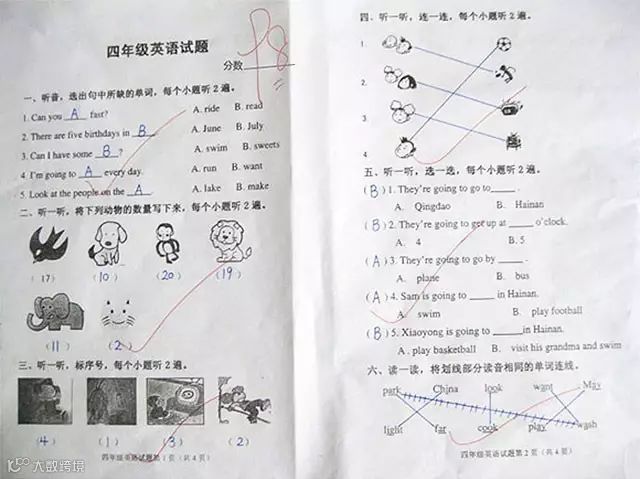 四年级英语试题
分数 98
一、听音，选出句中所缺的单词，每个小题听2遍。
1. Can you A fast? A. ride B. read
2. There are five birthdays in B. A. June B. July
3. Can I have some B? A. swim B. sweets
4. I'm going to A every day. A. run B. want
5. Look at the people on the A. A. lake B. make
二、听一听，将下列动物的数量写下来，每个小题听2遍。
(17) (10) (20) (19)
(11) (2)
三、听一听，标序号，每个小题听2遍。
(4) (1) (3) (2)
四年级英语试题第1页（共4页）
四、听一听，连一连，每个小题听2遍。
1.
2.
3.
4.
五、听一听，选一选，每个小题听2遍。
(B) 1. They're going to go to____.
A. Qingdao B. Hainan
(B) 2. They're going to get up at ____ o'clock.
A. 4 B. 5
(A) 3. They're going to go by ____.
A. plane B. bus
(A) 4. Sam is going to ____ in Hainan.
A. swim B. play football
(B) 5. Xiaoyong is going to ____in Hainan.
A. play basketball B. visit his grandma and swim
六、读一读，将划线部分读音相同的单词连线。
park China look want May
light far cook play wash
四年级英语试题第2页（共4页）
大数跨境